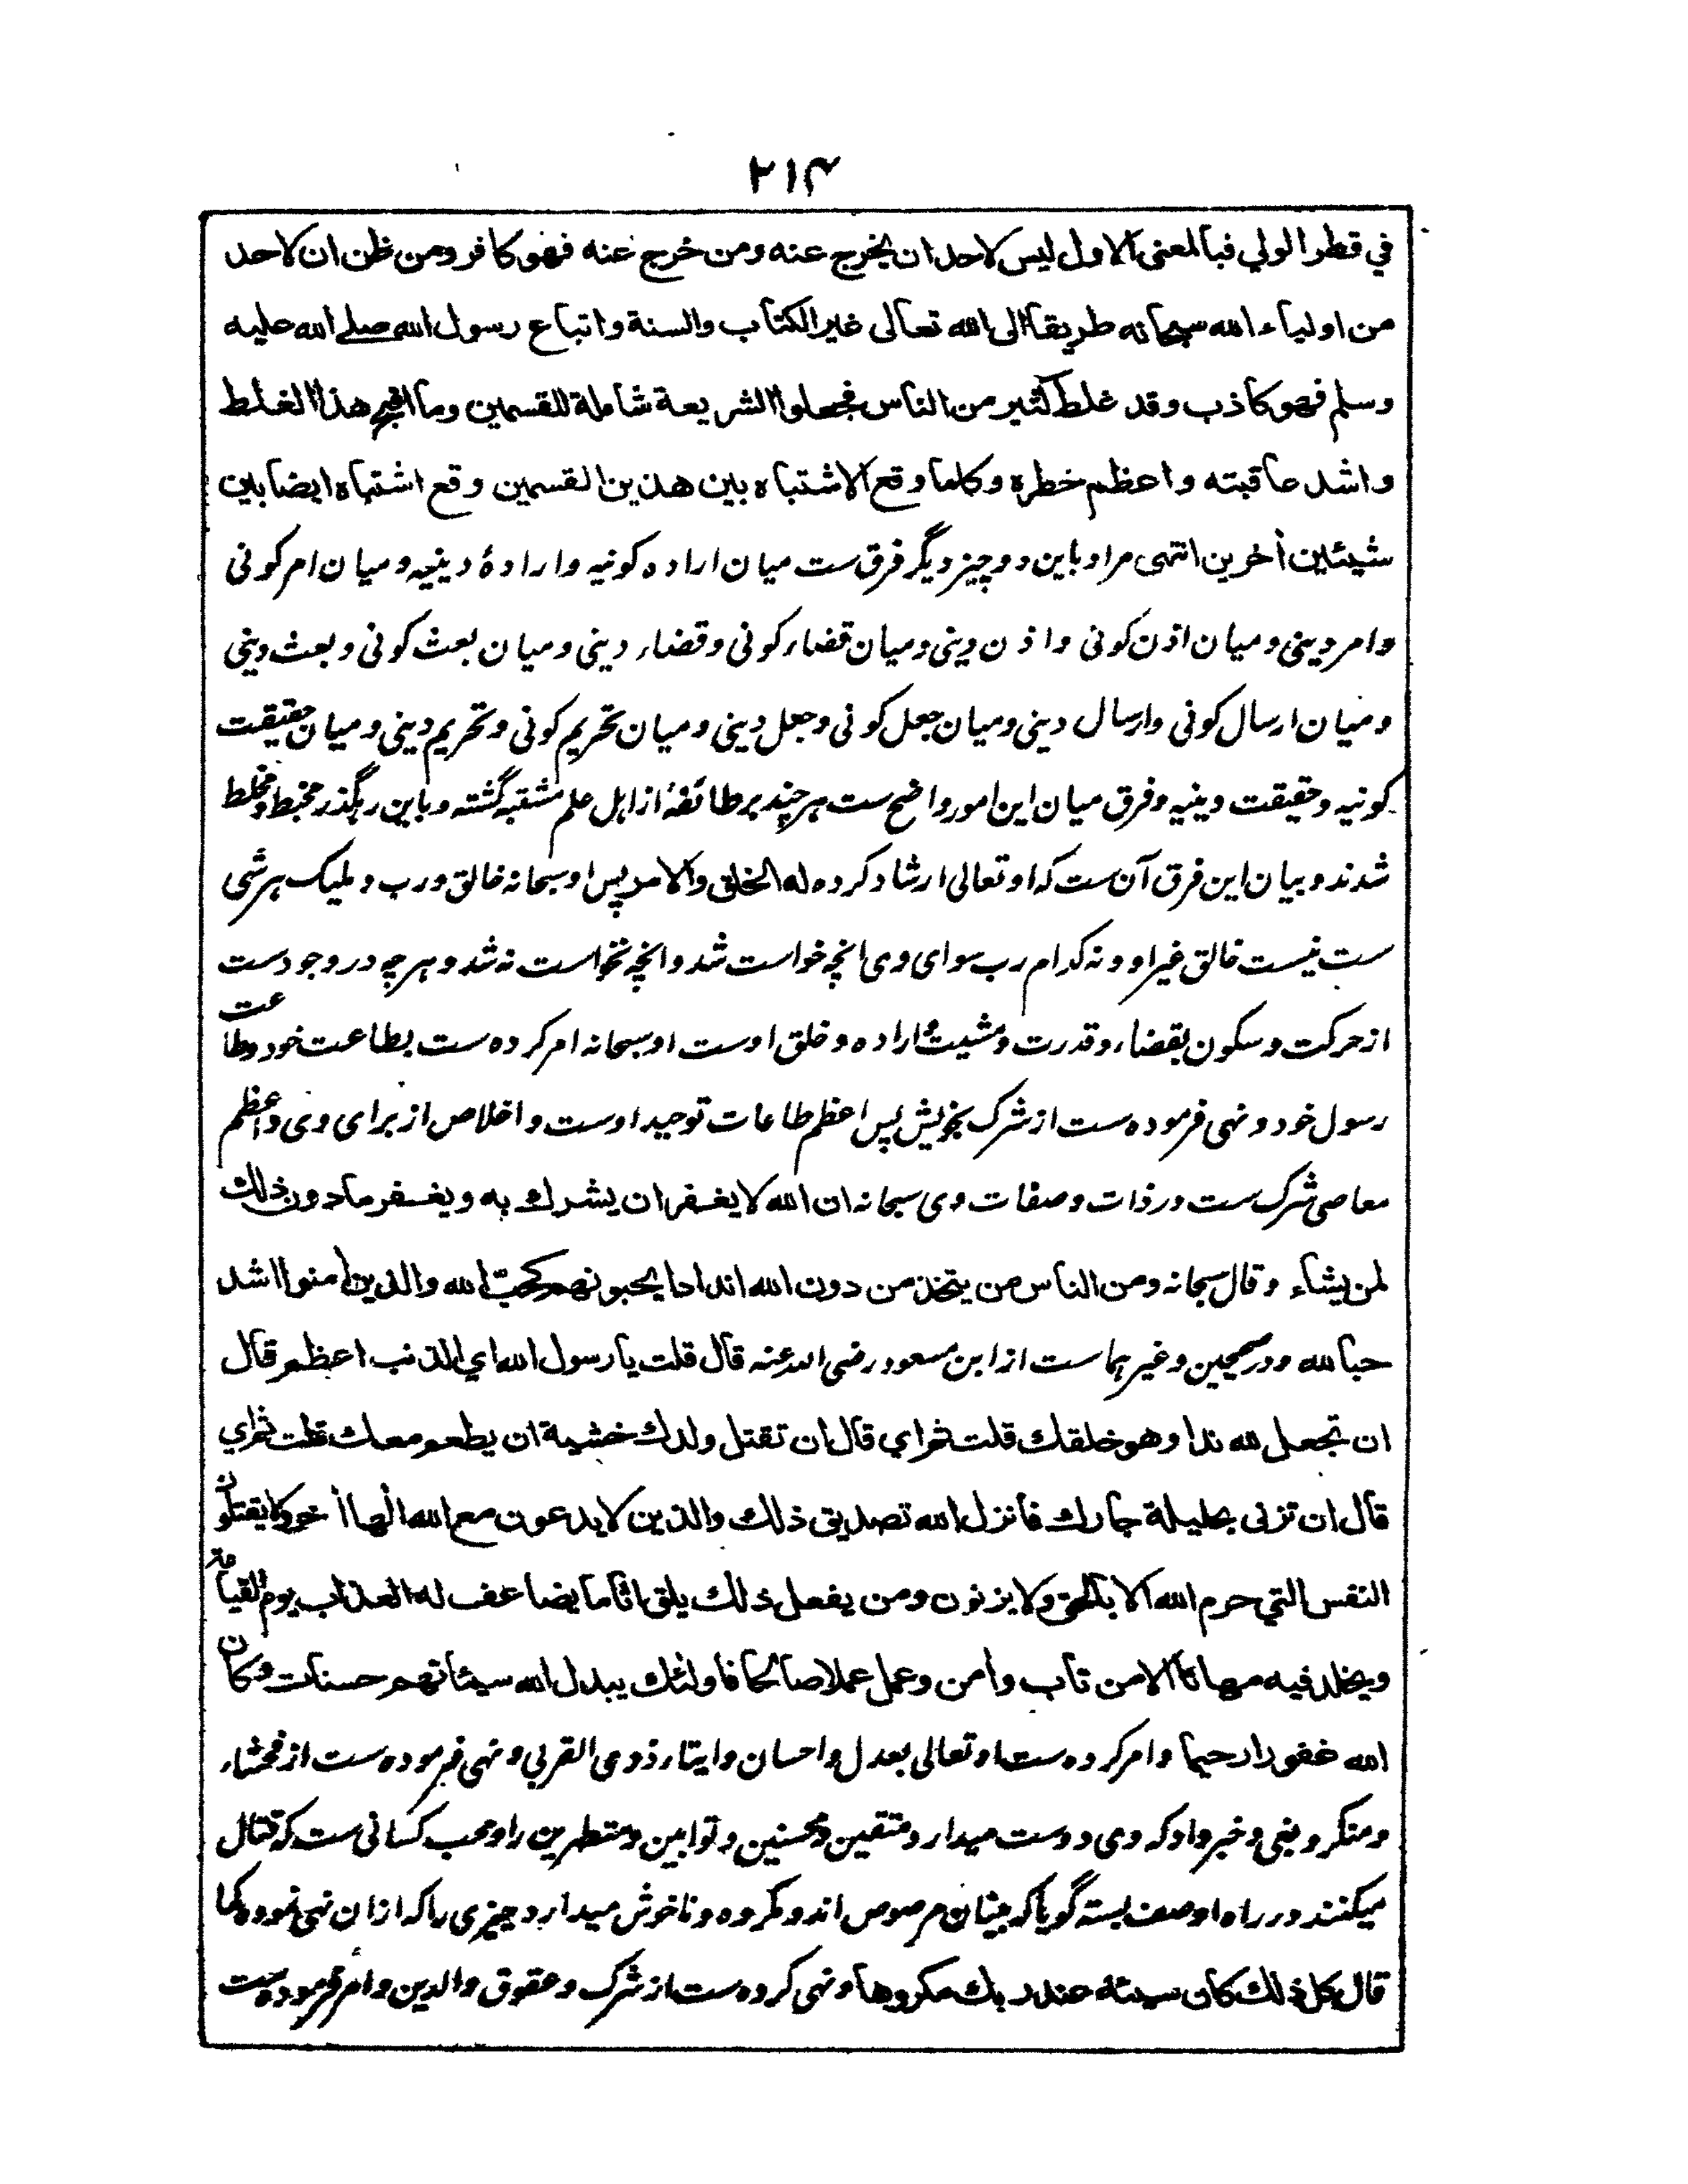 ۲۱۴
في قطر الولي فبالمعنى الاول ليس لاحد ان يخرج عنه ومن خرج عنه فهو كافر ومن ظن ان لاحد
من اولياء الله سبحانه طريقا الى الله تعالى غير الكتاب والسنة واتباع رسول الله صلى الله عليه
وسلم فهو كاذب وقد غلط كثير من الناس فجعلوا الشريعة شاملة للقسمين وما اقبح هذا الغلط
واشد عاقبته واعظم خطره وكلما وقع الاشتباه بين هذين القسمين وقع اشتباه ايضا بين
شيئين أخرين انتهى مراد باین دو چیز دیگر فرق ست میان اراده کونیه وارادۀ دینیه ومیان امر کونی
وامر دینی ومیان اذن کونی واذن دینی ومیان قضاء کونی وقضاء دینی ومیان بعث کونی وبعث دینی
ومیان ارسال کونی وارسال دینی ومیان جعل کونی وجعل دینی ومیان تحریم کونی وتحریم دینی ومیان حقیقت
کونیه وحقیقت دینیه وفرق میان این امور واضح ست هر چند بر طائفۀ از اهل علم مشتبه گشته وباین رهگذر مخبط ومخلط
شدند وبیان این فرق آن ست که او تعالی ارشاد کرده له الخلق والامر پس او سبحانه خالق ورب وملیک هر شی
ست نیست خالق غیر او ونه کدام رب سوای وی انچه خواست شد وانچه نخواست نه شد وهر چه در وجود ست
از حرکت وسکون بقضاء وقدرت ومشیت واراده وخلق اوست او سبحانه امر کرده ست بطاعت خود وطاعت
رسول خود ونهی فرموده ست از شرک بخویش پس اعظم طاعات توحید اوست واخلاص از برای وی واعظم
معاصی شرک ست در ذات وصفات وی سبحانه ان الله لا يغفر ان يشرك به ويغفر ما دون ذلك
لمن يشاء وقال سبحانه ومن الناس من يتخذ من دون الله اندادا يحبونهم كحب الله والذين أمنوا اشد
حبا لله ودر صحیحین وغیر هما ست از ابن مسعود رضی الله عنه قال قلت يا رسول الله اي الذنب اعظم قال
ان تجعل لله ندا وهو خلقك قلت ثم اي قال ان تقتل ولدك خشية ان يطعم معك قلت ثم اي
قال ان تزني بحليلة جارك فانزل الله تصديق ذلك والذين لا يدعون مع الله الها أخر ولا يقتلون
النفس التي حرم الله الا بالحق ولا يزنون ومن يفعل ذلك يلق اثاما يضاعف له العذاب يوم القيامة
ويخلد فيه مهانا الا من تاب وأمن وعمل عملا صالحا فاولئك يبدل الله سيئاتهم حسنات وكان
الله غفورا رحيما وامر کرده ست او تعالی بعدل واحسان وایتاء ذوی القربی ونهی فرموده ست از فحشاء
ومنکر وبغی وخبر داد که وی دوست میدارد متقین ومحسنین وتوابین ومتطهرین را ومحب کسانی ست که قتال
میکنند در راه او صف بسته گویا که بنیان مرصوص اند ومکروه وناخوش میدارد چیزی را که ازان نهی نموده کما
قال كل ذلك كان سيئة عند ربك مكروها ونهی کرده ست از شرک وعقوق والدین وامر فرموده ست